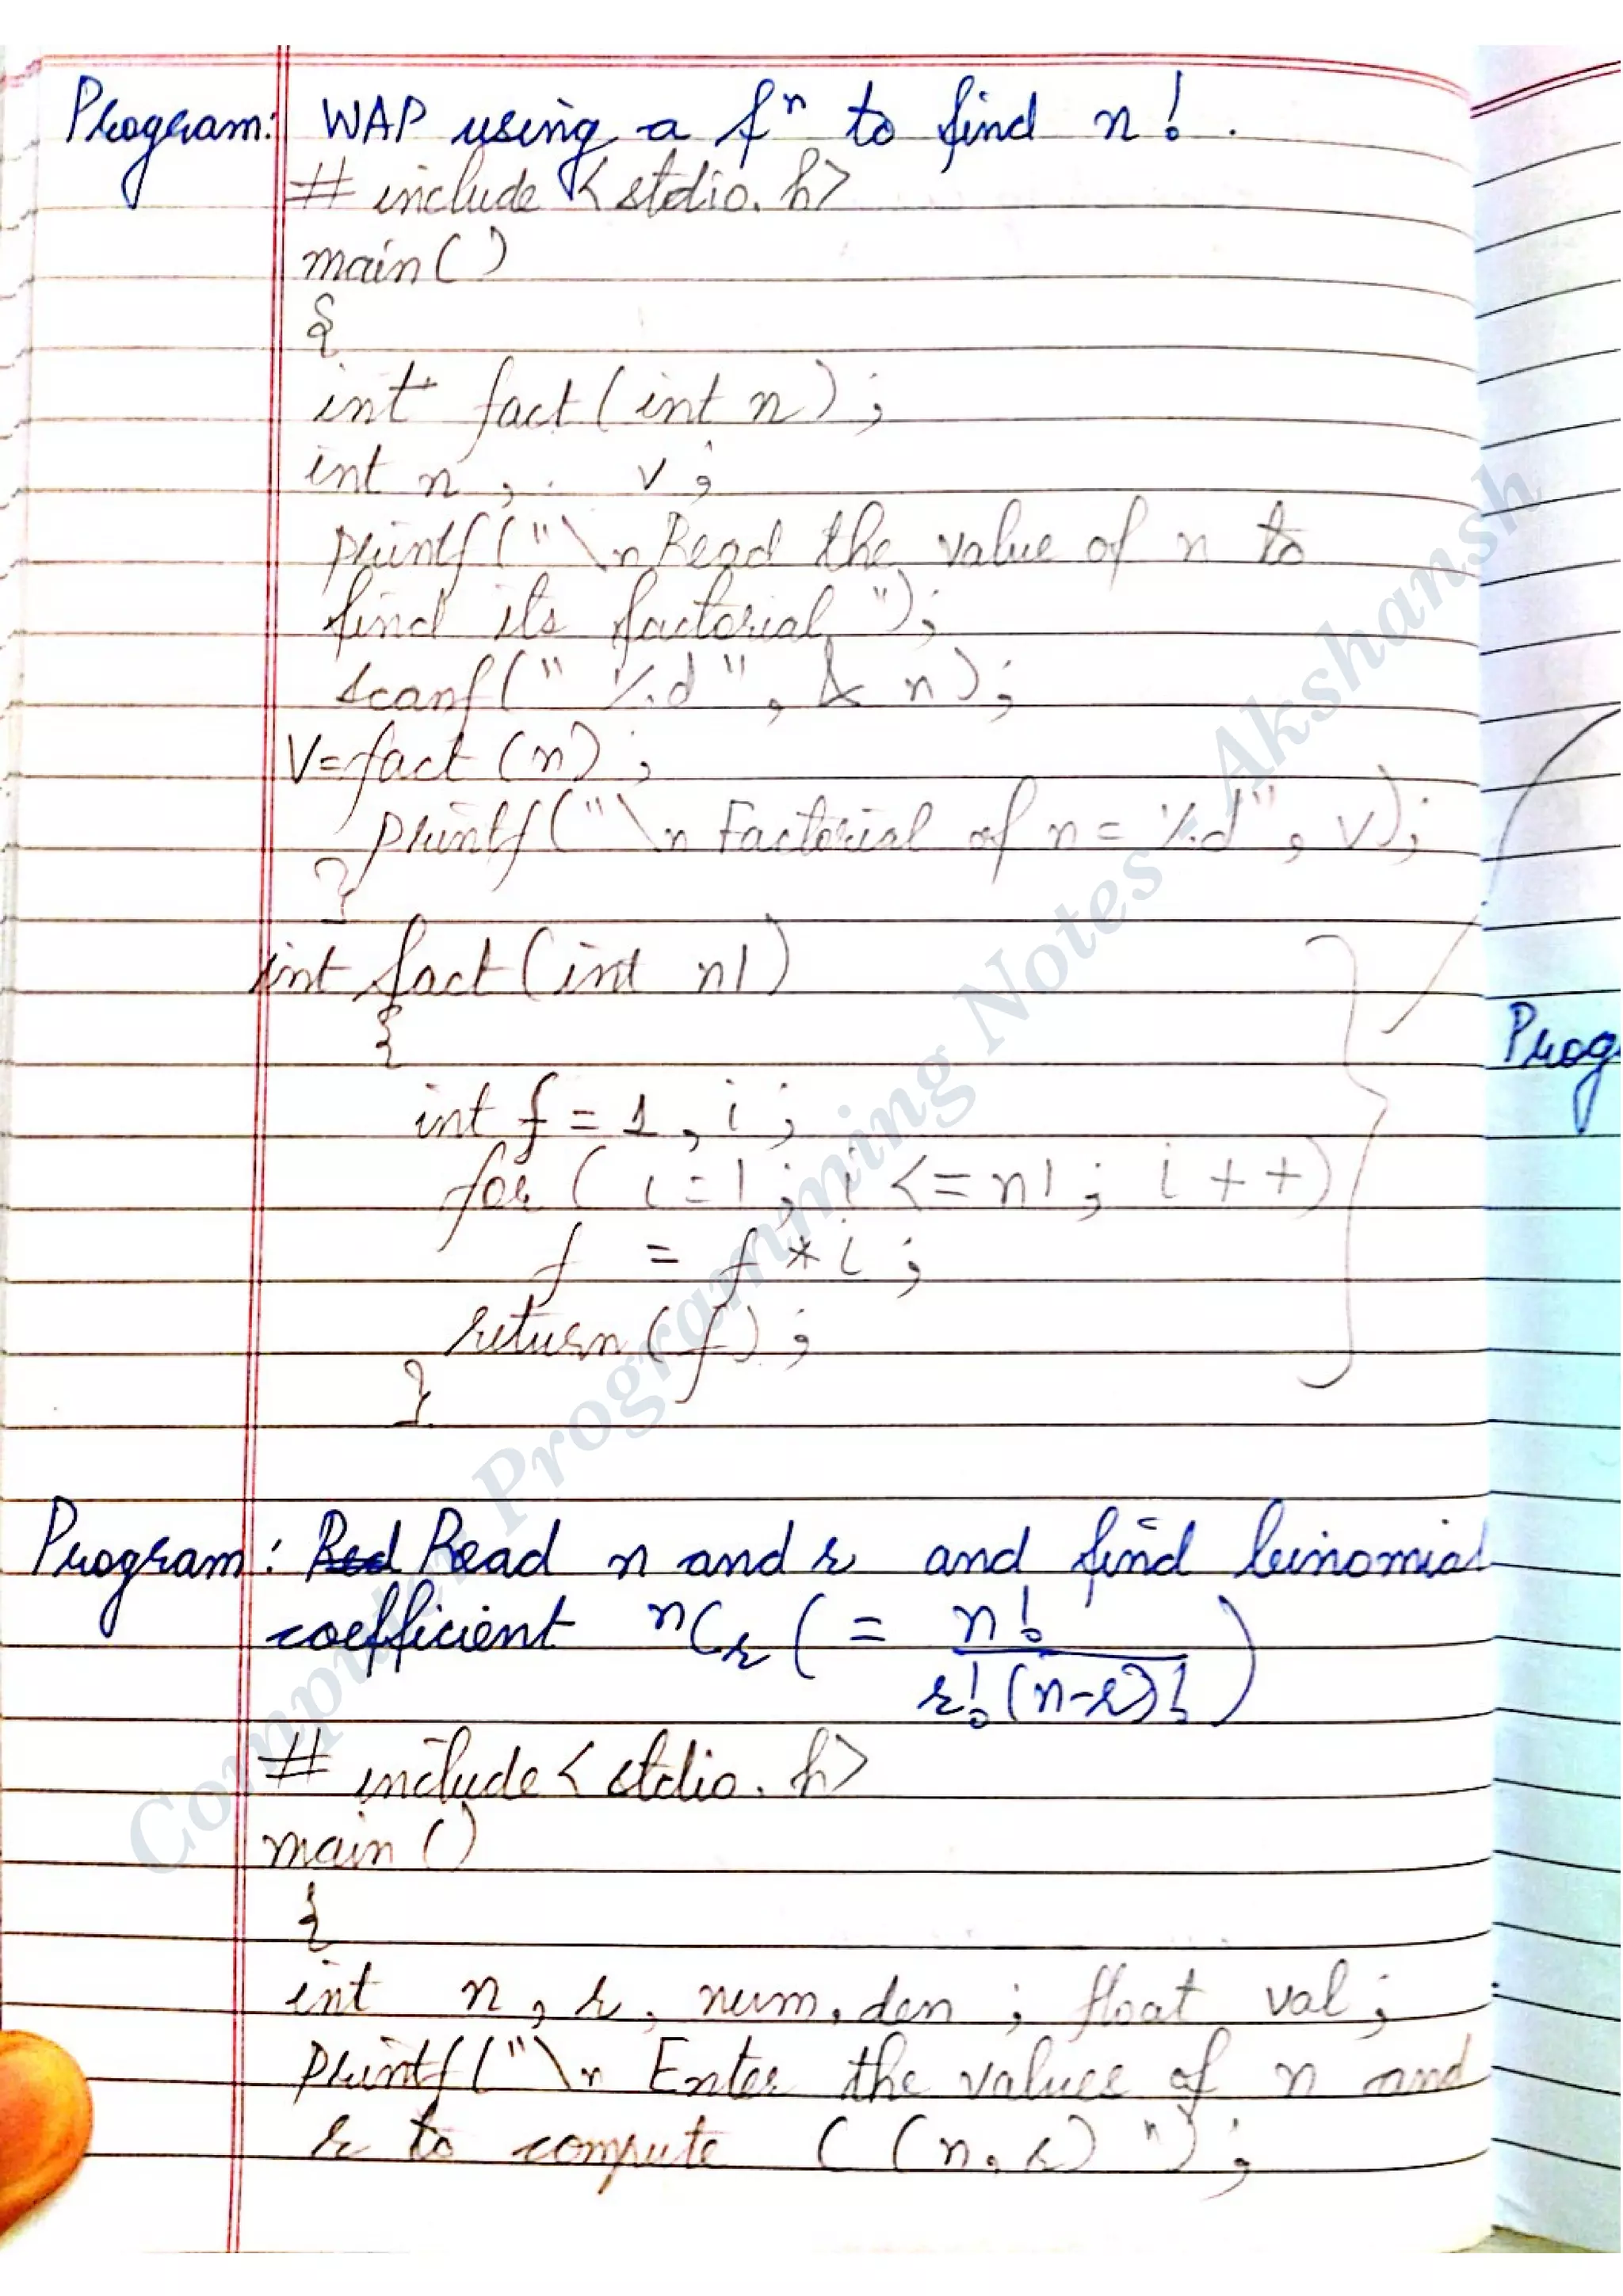 Program: WAP using a fⁿ to find n! .
# include <stdio.h>
main()
{
int fact(int n);
int n, . v;
printf("\n Read the value of n to
find its factorial");
scanf("%d", & n);
v=fact(n);
printf("\n Factorial of n = %d", v);
}
int fact(int n1)
{
int f = 1, i;
for ( i=1; i <= n1; i++)
f = f * i;
return(f);
}
Prog
Program: Red Read n and r and find binomial
coefficient ⁿCr (= n!
r!(n-r)! )
# include <stdio.h>
main()
{
int n, r, num, den; float val;
printf("\n Enter the values of n and
r to compute C(n,r)");
Computer Programming Notes - Akshansh